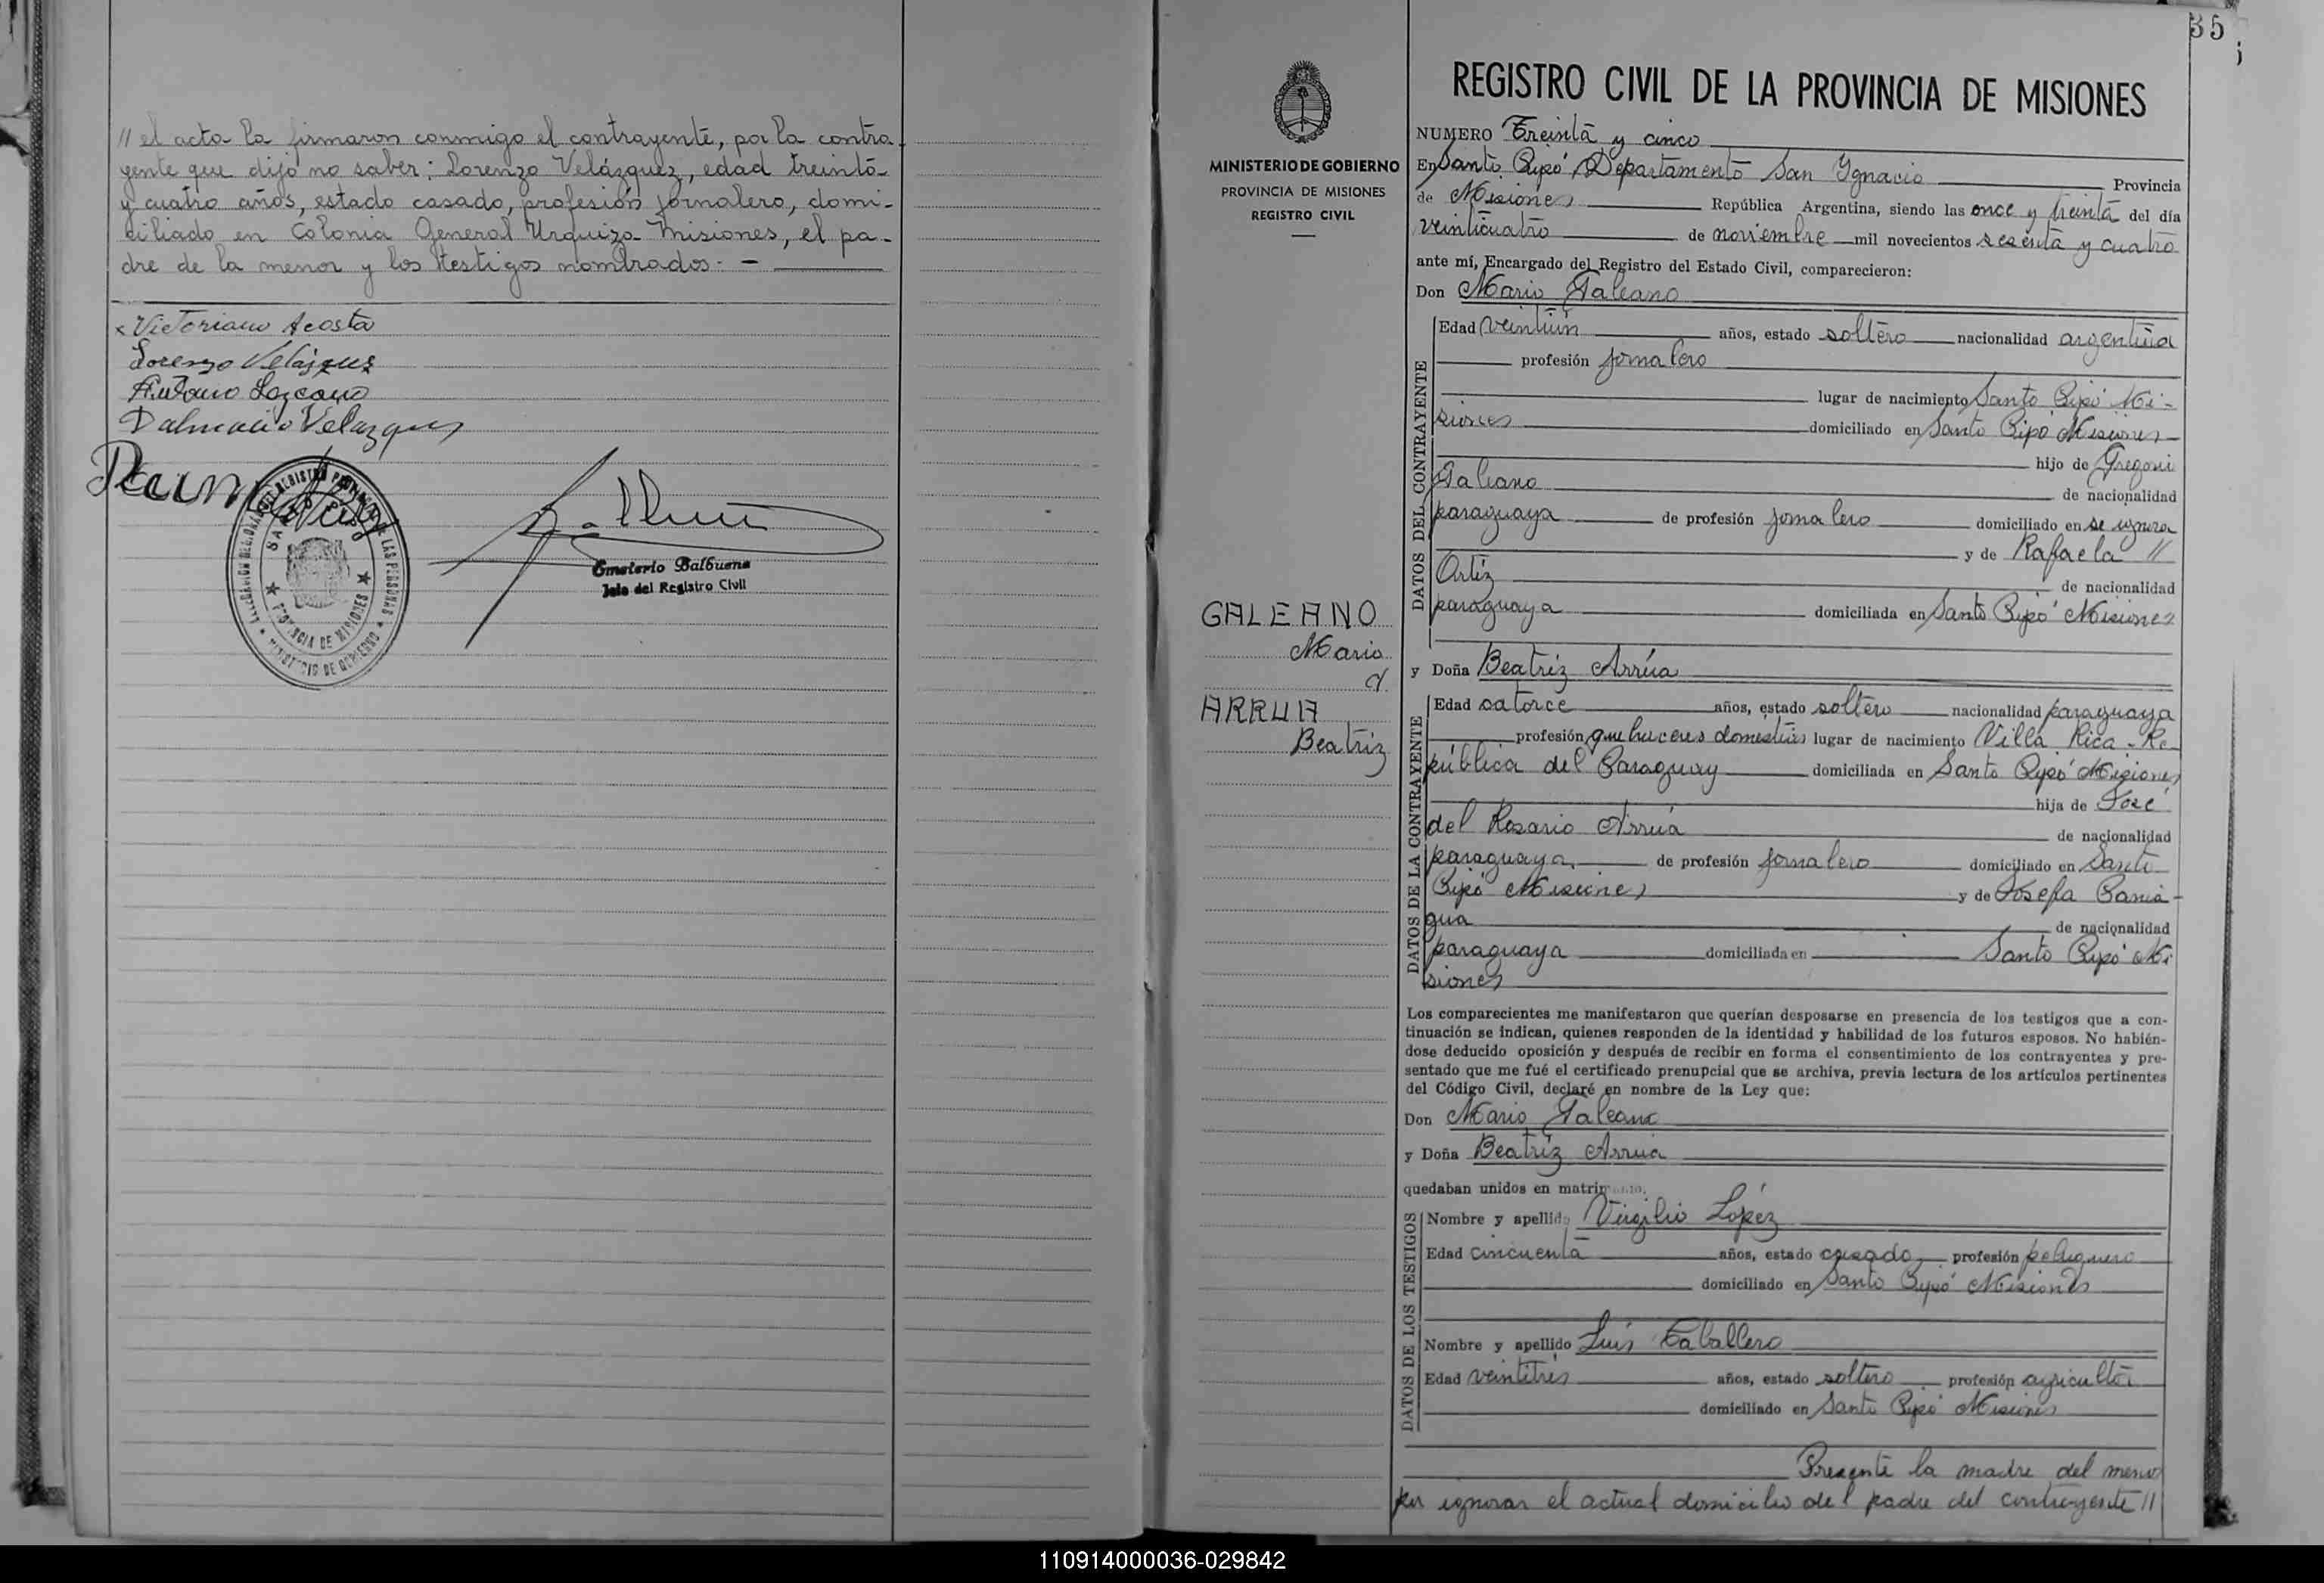 // el acta la firmaron conmigo el contrayente, por la contra-
yente que dijo no saber: Lorenzo Velázquez, edad treinta
y cuatro años, estado casado, profesión jornalero, domi-
ciliado en Colonia General Urquiza Misiones, el pa-
dre de la menor y los testigos nombrados. -
x Victoriano Acosta
Lorenzo Velázquez
Lozcano
Dalmacio Velazquez
SANTO PIPO
PROVINCIA DE MISIONES
MINISTERIO DE GOBIERNO
Emeterio Balbuena
Jefe del Registro Civil
35
MINISTERIO DE GOBIERNO
PROVINCIA DE MISIONES
REGISTRO CIVIL
GALEANO
Mario
y
ARRUA
Beatriz
REGISTRO CIVIL DE LA PROVINCIA DE MISIONES
NUMERO Treinta y cinco
En Santo Pipó, Departamento San Ignacio Provincia
de Misiones República Argentina, siendo las once y treinta del día
veinticuatro de noviembre mil novecientos sesenta y cuatro
ante mí, Encargado del Registro del Estado Civil, comparecieron:
Don Mario Galeano
DATOS DEL CONTRAYENTE
Edad veintiún años, estado soltero nacionalidad argentina
profesión jornalero
lugar de nacimiento Santo Pipó Mi-
siones domiciliado en Santo Pipó Misiones
hijo de Gregori
Galeano de nacionalidad
paraguaya de profesión jornalero domiciliado en se ignora
y de Rafaela //
Ortiz de nacionalidad
paraguaya domiciliada en Santo Pipó Misiones
y Doña Beatriz Arrúa
DATOS DE LA CONTRAYENTE
Edad catorce años, estado soltero nacionalidad paraguaya
profesión quehaceres domésticos lugar de nacimiento Villa Rica - Re-
pública del Paraguay domiciliada en Santo Pipó Misiones
hija de José
del Rosario Arrúa de nacionalidad
paraguaya de profesión jornalero domiciliado en Santo
Pipó Misiones y de Josefa Pania-
gua de nacionalidad
paraguaya domiciliada en Santo Pipó Mi
siones
Los comparecientes me manifestaron que querían desposarse en presencia de los testigos que a con-
tinuación se indican, quienes responden de la identidad y habilidad de los futuros esposos. No habién-
dose deducido oposición y después de recibir en forma el consentimiento de los contrayentes y pre-
sentado que me fué el certificado prenupcial que se archiva, previa lectura de los artículos pertinentes
del Código Civil, declaré en nombre de la Ley que:
Don Mario Galeano
y Doña Beatriz Arrua
quedaban unidos en matrimonio,
DATOS DE LOS TESTIGOS
Nombre y apellido Virgilio López
Edad cincuenta años, estado casado profesión peluquero
domiciliado en Santo Pipó Misiones
Nombre y apellido Luis Caballero
Edad veintitrés años, estado soltero profesión agricultor
domiciliado en Santo Pipó Misiones
Presente la madre del menor
por ignorar el actual domicilio del padre del contrayente //
110914000036-029842